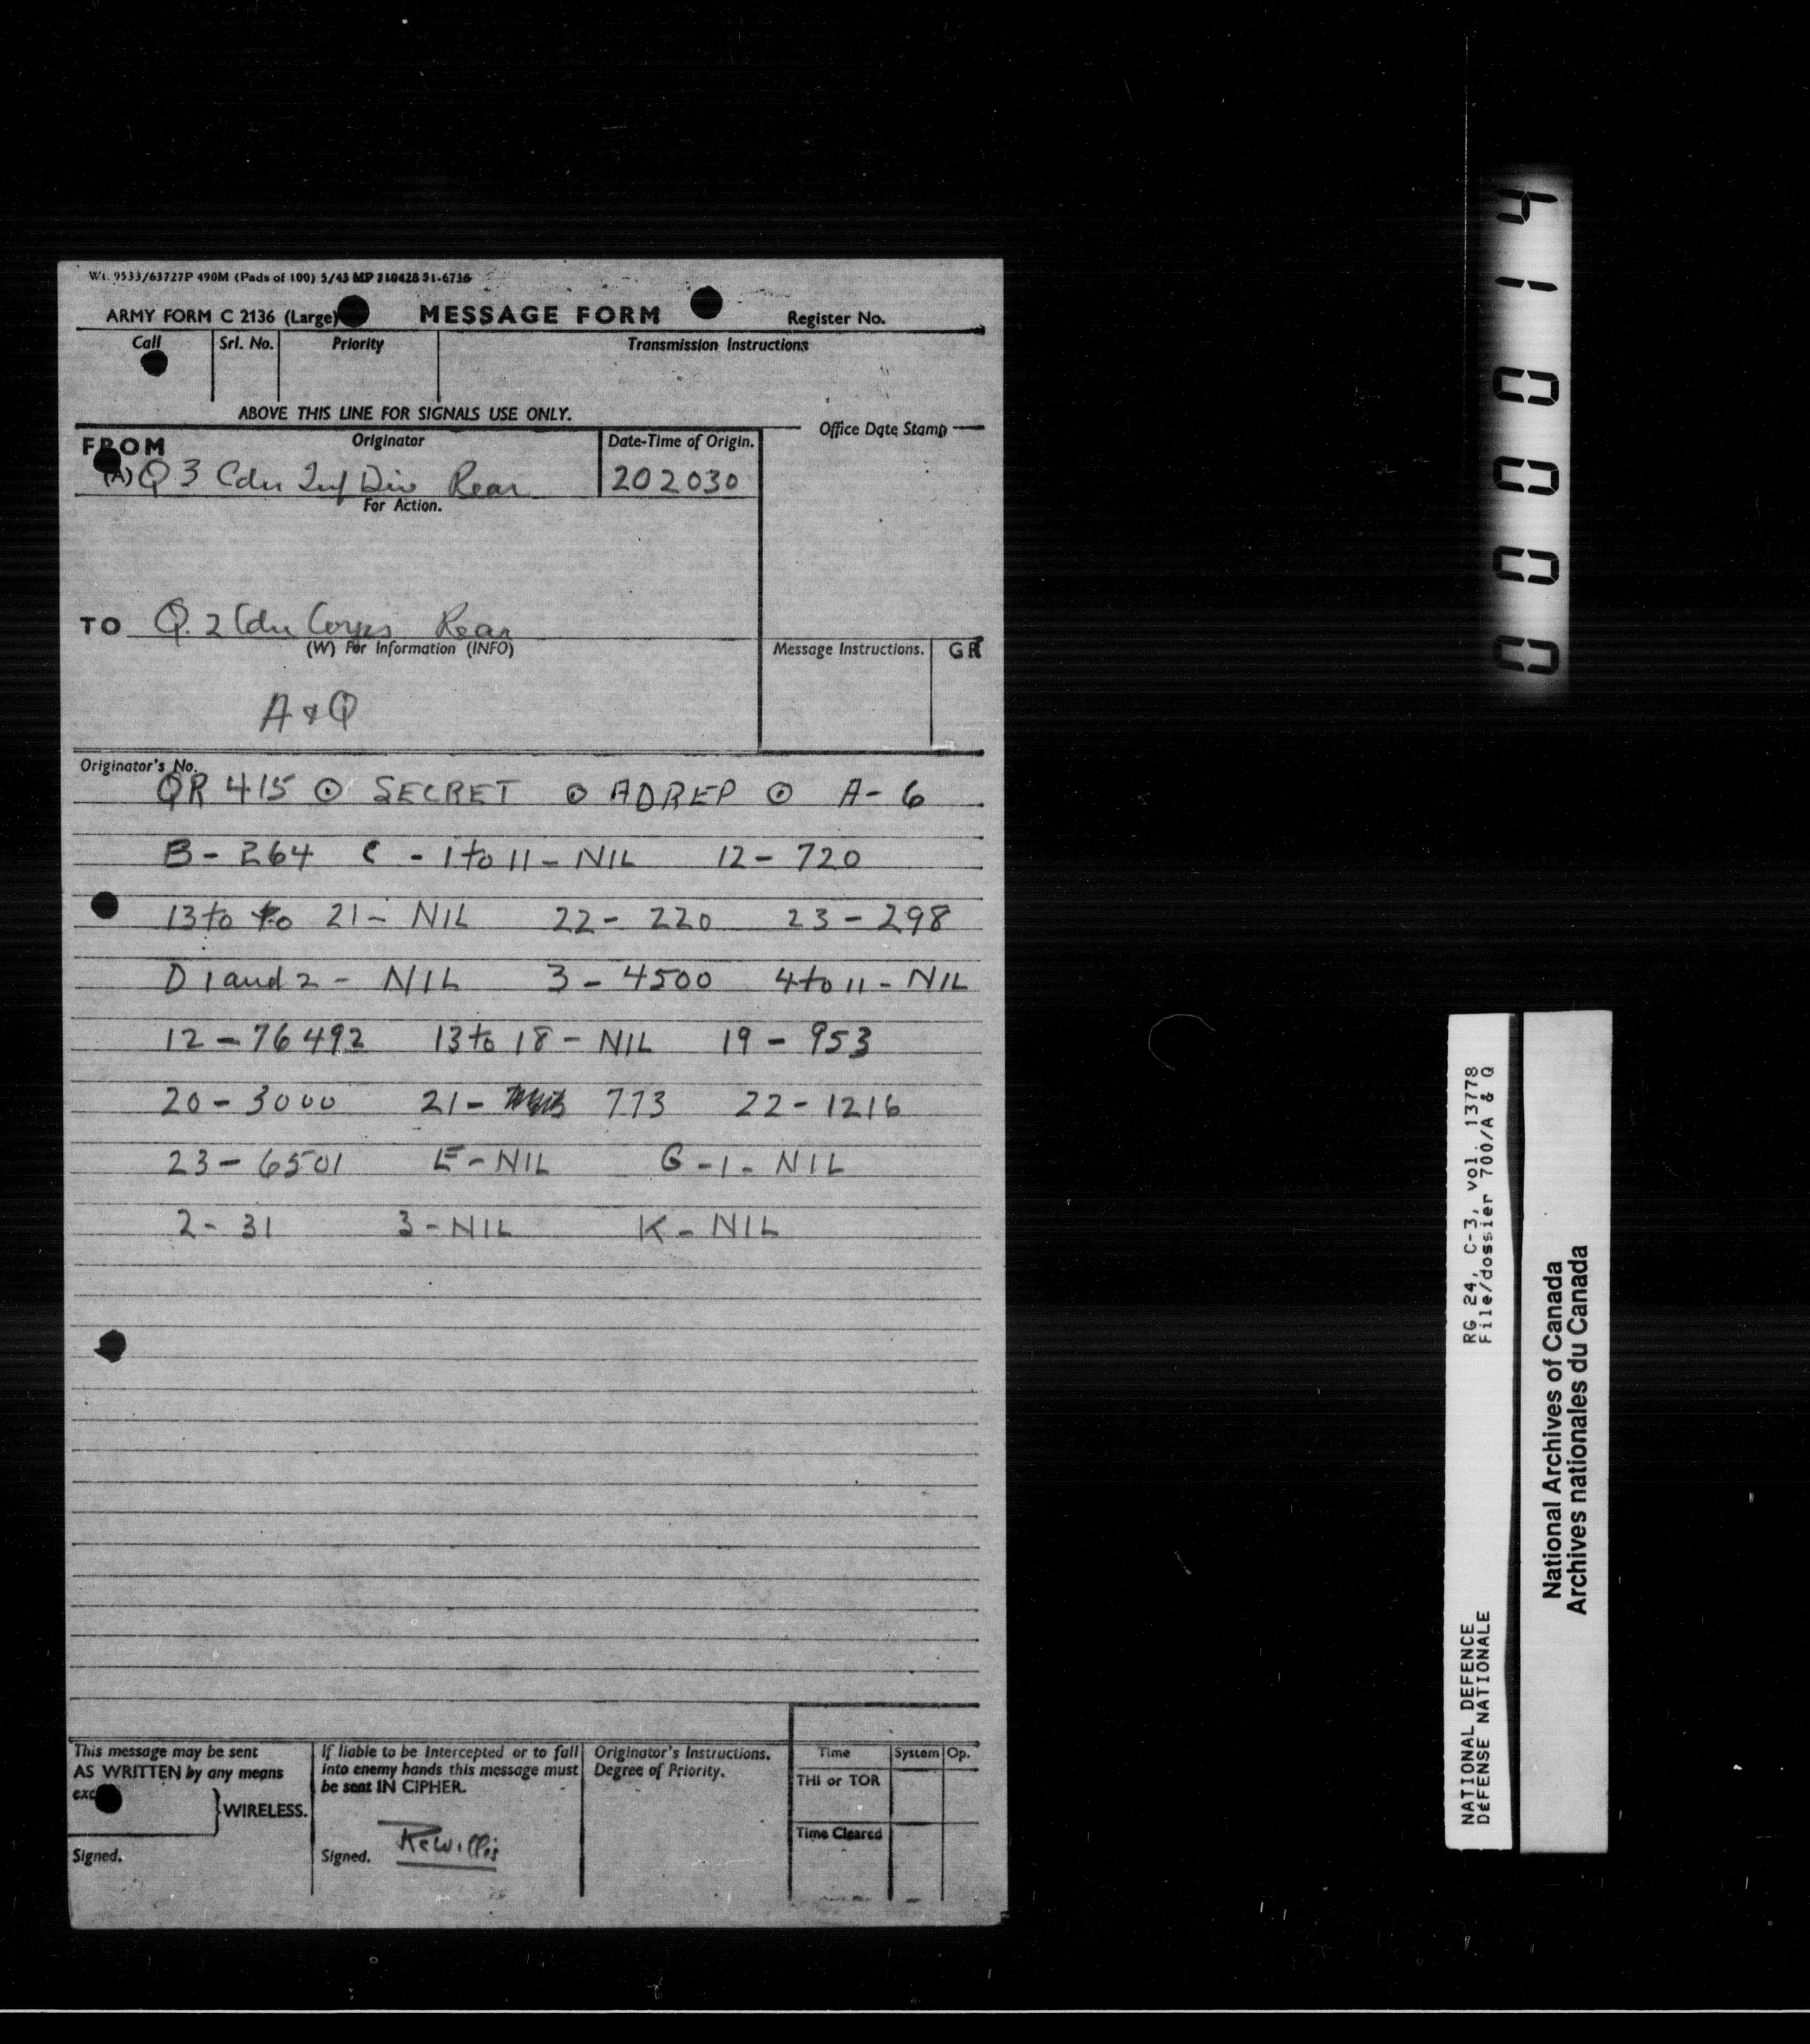 Wt. 9533/63727P 490M (Pads of 100) 5/43 MP 310428 51-6736
ARMY FORM C 2136 (Large) MESSAGE FORM Register No.
Call Srl. No. Priority Transmission Instructions
ABOVE THIS LINE FOR SIGNALS USE ONLY.
FROM Originator Date-Time of Origin. Office Date Stamp
(A) Q 3 Cdn Inf Div Rear 202030
For Action.
TO Q. 2 Cdn Corps Rear
(W) For Information (INFO) Message Instructions. GR
A & Q
Originator's No.
QR 415 ⊙ SECRET ⊙ ADREP ⊙ A - 6
B - 264 C - 1 to 11 - NIL 12 - 720
13 to to 21 - NIL 22 - 220 23 - 298
D 1 and 2 - NIL 3 - 4500 4 to 11 - NIL
12 - 76492 13 to 18 - NIL 19 - 953
20 - 3000 21 - 773 22 - 1216
23 - 6501 E - NIL G - 1 - NIL
2 - 31 3 - NIL K - NIL
This message may be sent
AS WRITTEN by any means
WIRELESS.
Signed.
If liable to be intercepted or to fall
into enemy hands this message must
be sent IN CIPHER.
Signed. RCWillis
Originator's Instructions.
Degree of Priority.
Time System Op.
THI or TOR
Time Cleared
000014
NATIONAL DEFENCE RG 24, C-3, vol. 13778
DÉFENSE NATIONALE File/dossier 700/A & Q
National Archives of Canada
Archives nationales du Canada